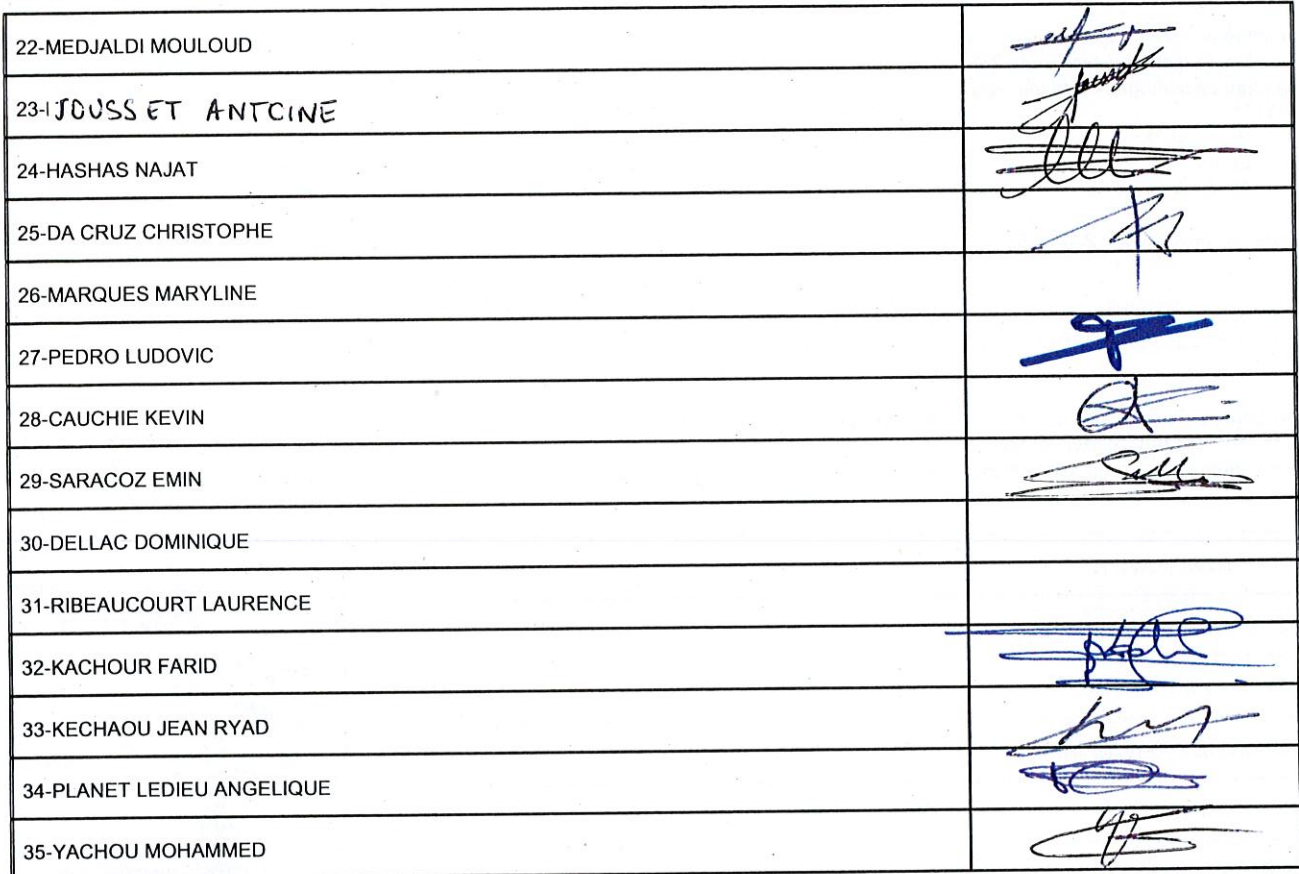 22-MEDJALDI MOULOUD
23-JOUSSET ANTOINE
24-HASHAS NAJAT
25-DA CRUZ CHRISTOPHE
26-MARQUES MARYLINE
27-PEDRO LUDOVIC
28-CAUCHIE KEVIN
29-SARACOZ EMIN
30-DELLAC DOMINIQUE
31-RIBEAUCOURT LAURENCE
32-KACHOUR FARID
33-KECHAOU JEAN RYAD
34-PLANET LEDIEU ANGELIQUE
35-YACHOU MOHAMMED